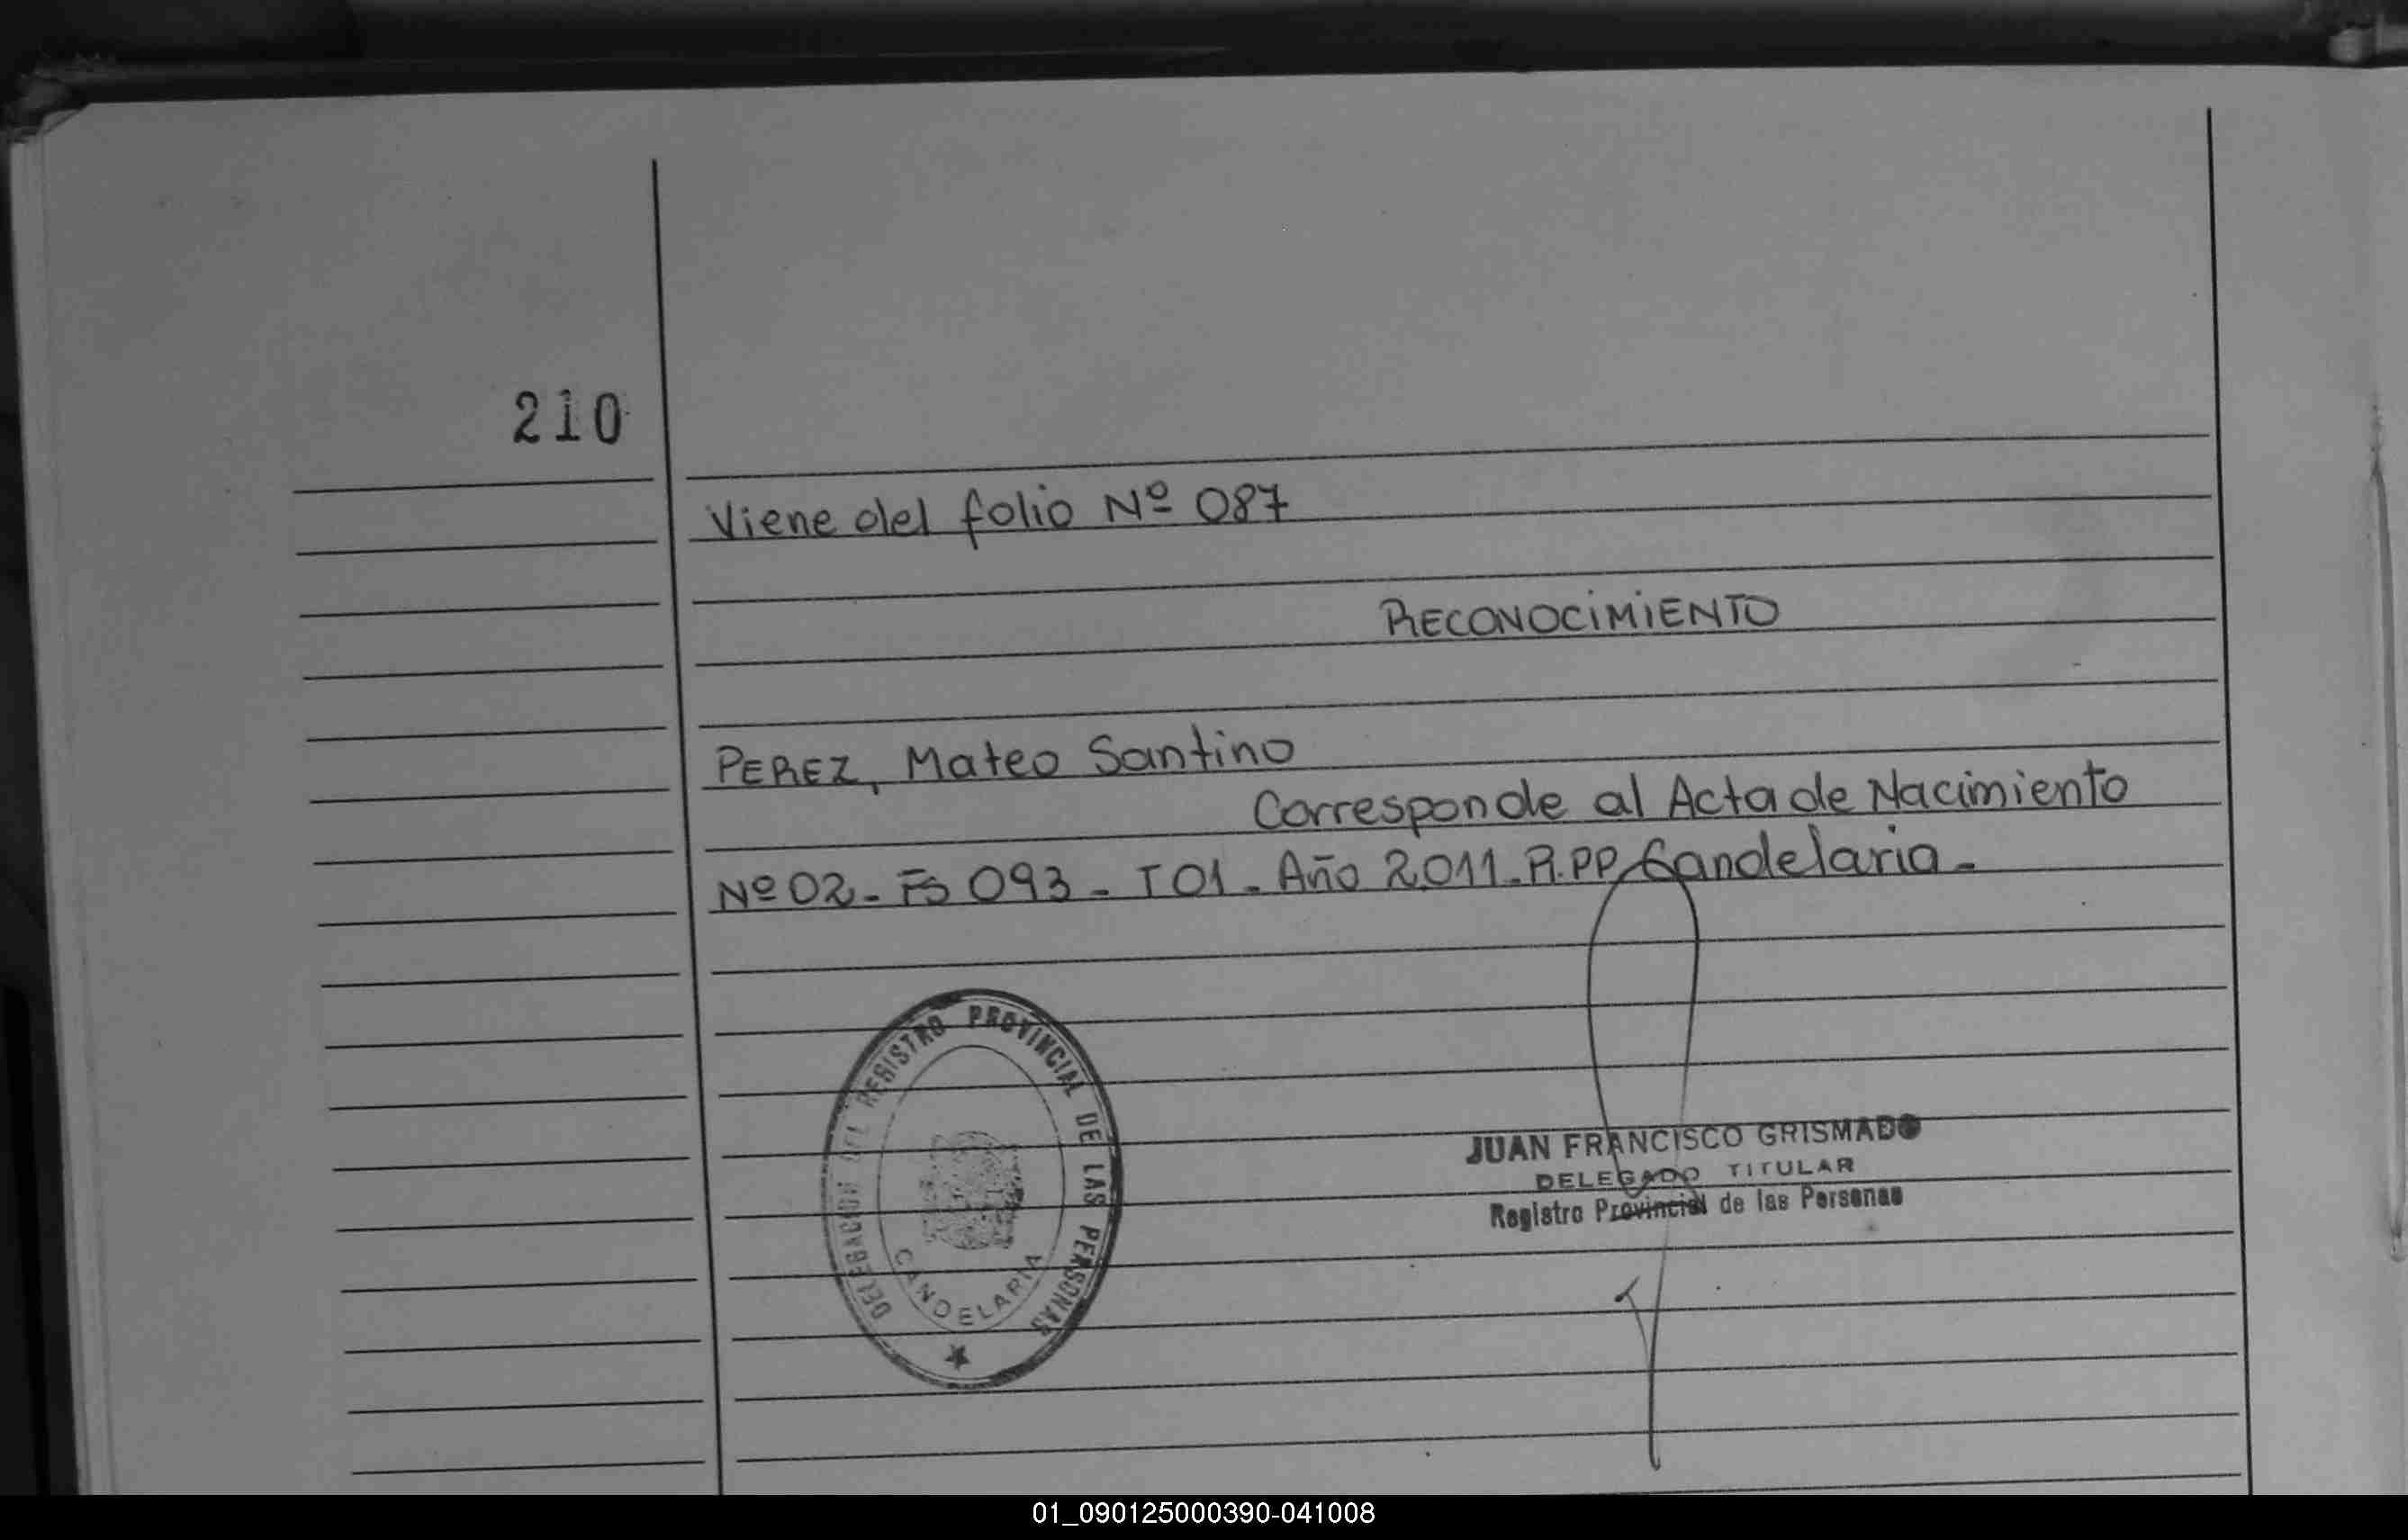 210
Viene del folio Nº 087
RECONOCIMIENTO
PEREZ, Mateo Santino
Corresponde al Acta de Nacimiento
Nº 02 - Fs 093 - T 01 - Año 2011 - R.PP Candelaria -
DELEGACION DEL REGISTRO PROVINCIAL DE LAS PERSONAS
CANDELARIA
JUAN FRANCISCO GRISMADO
DELEGADO TITULAR
Registro Provincial de las Personas
01_090125000390-041008